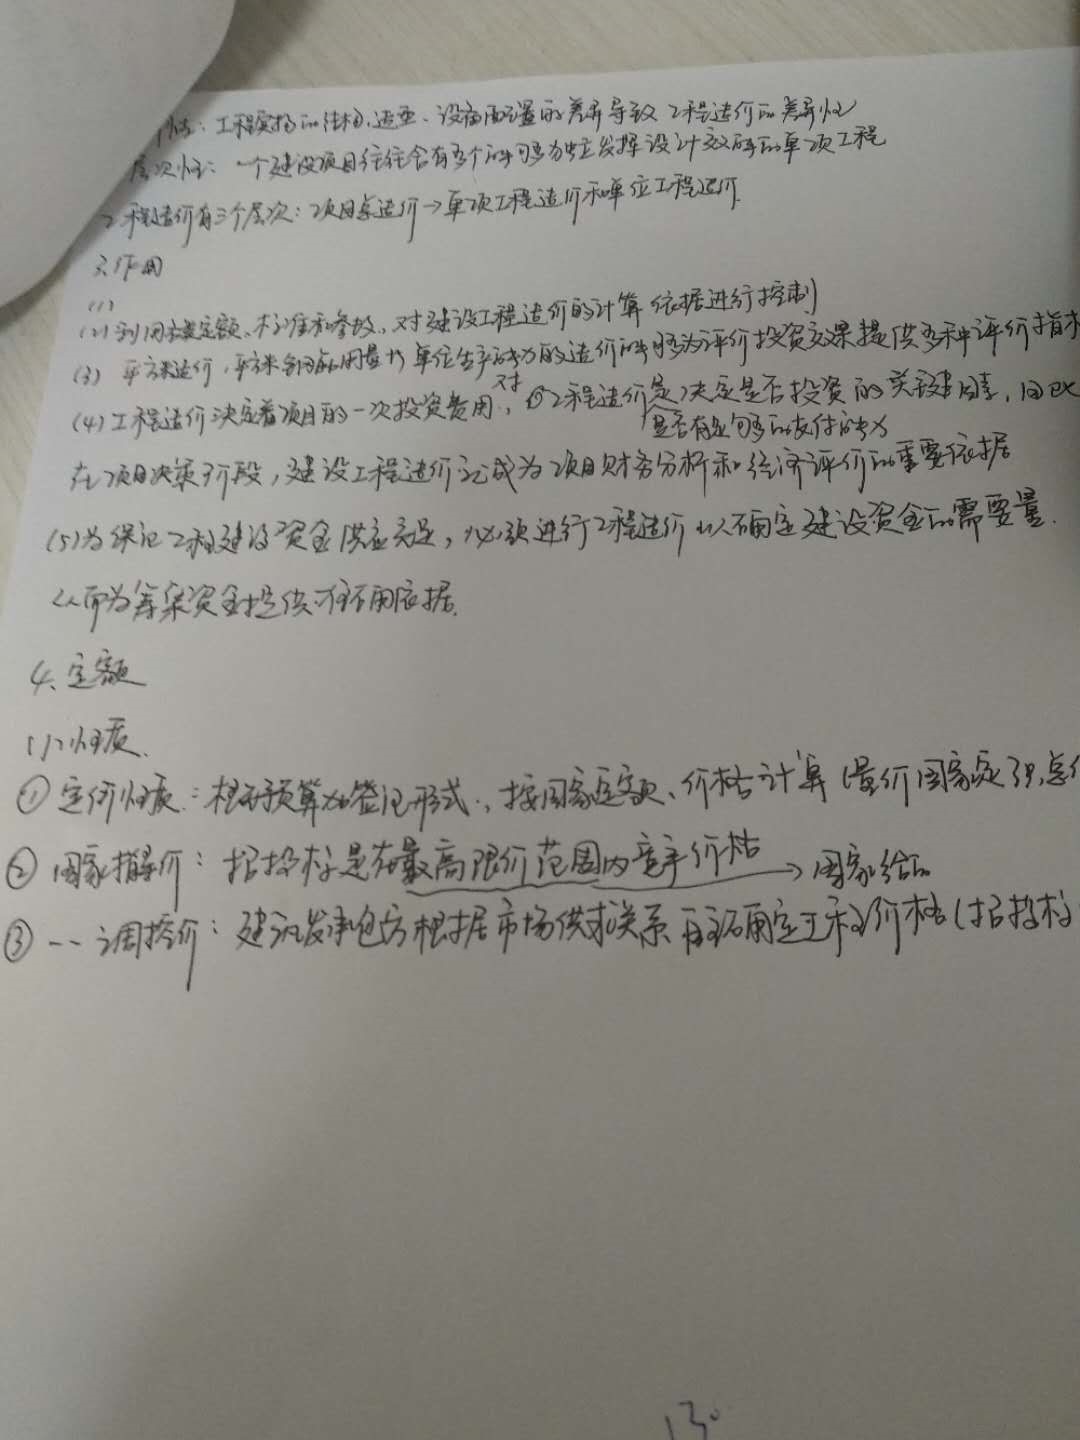 性：工程实物的结构、造型、设备配置的差异导致工程造价的差异性
层次性：一个建设项目往往含有多个能够独立发挥设计效能的单项工程
工程造价有三个层次：项目总造价→单项工程造价和单位工程造价.
3.作用
(1)
(2)利用各类定额、标准和参数、对建设工程造价的计算依据进行控制
(3) 平方米造价，平方米钢筋用量与单位生产能力的造价能够为评价投资效果提供多种评价指标
(4)工程造价决定着项目的一次投资费用, 对 工程造价是决定是否投资的关键因素, 因此
是否有足够的支付能力
在项目决策阶段, 建设工程造价就成为项目财务分析和经济评价的重要依据
(5)为保证工程建设资金供应充足, 必须进行工程造价以确定建设资金的需要量.
从而为筹集资金提供准确依据.
4、定额
(1)性质.
① 定价性质：根据预算加签证形式, 按国家定额、价格计算 (量价国家定死,总价
② 国家指导价：招投标是在最高限价范围内竞争价格 → 国家给的
③ 一一调控价：建设发承包方根据市场供求关系自主确定工程价格(招投标
130